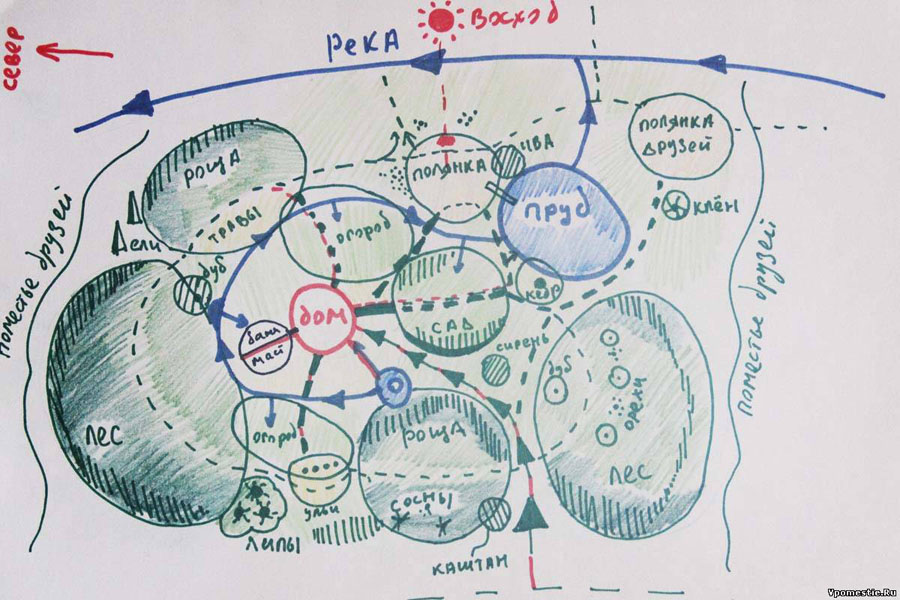 ВОСХОД
север
река
ПОЛЯНКА
ДРУЗЕЙ
ИВА
ПОЛЯНКА
РОЩА
ПРУД
КЛЁН
травы
огород
ели
Поместье друзей
поместье друзей
дуб
кедр
дом
САД
сирень
дуб
орехи
лес
РОЩА
лес
огород
СОСНЫ
ульи
липы
КАШТАН
Vpomestie.Ru